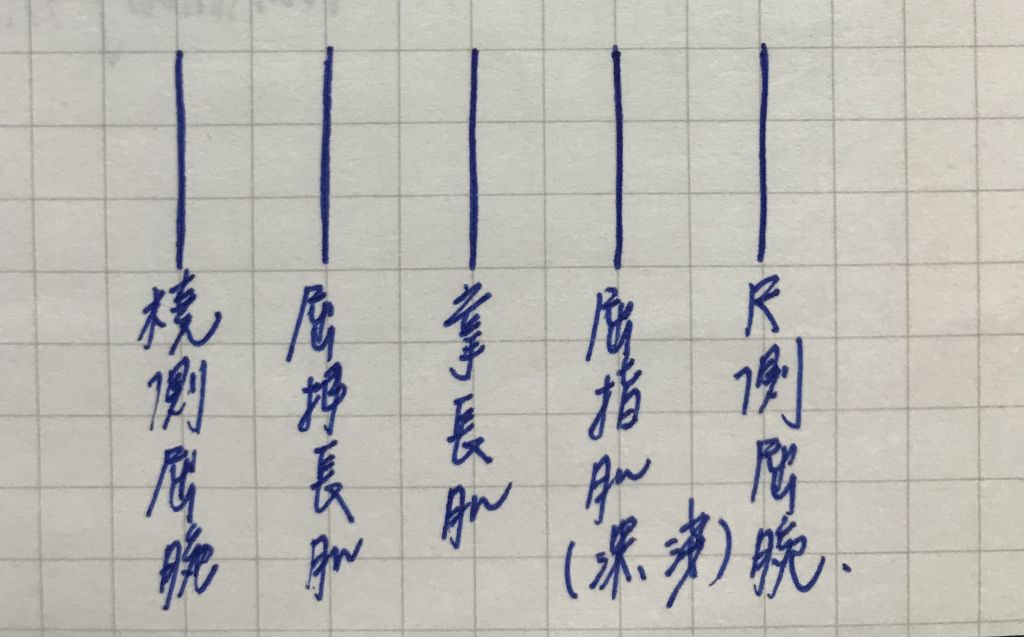 橈側屈腕
屈拇長肌
掌長肌
屈指肌(深、淺)
尺側屈腕.